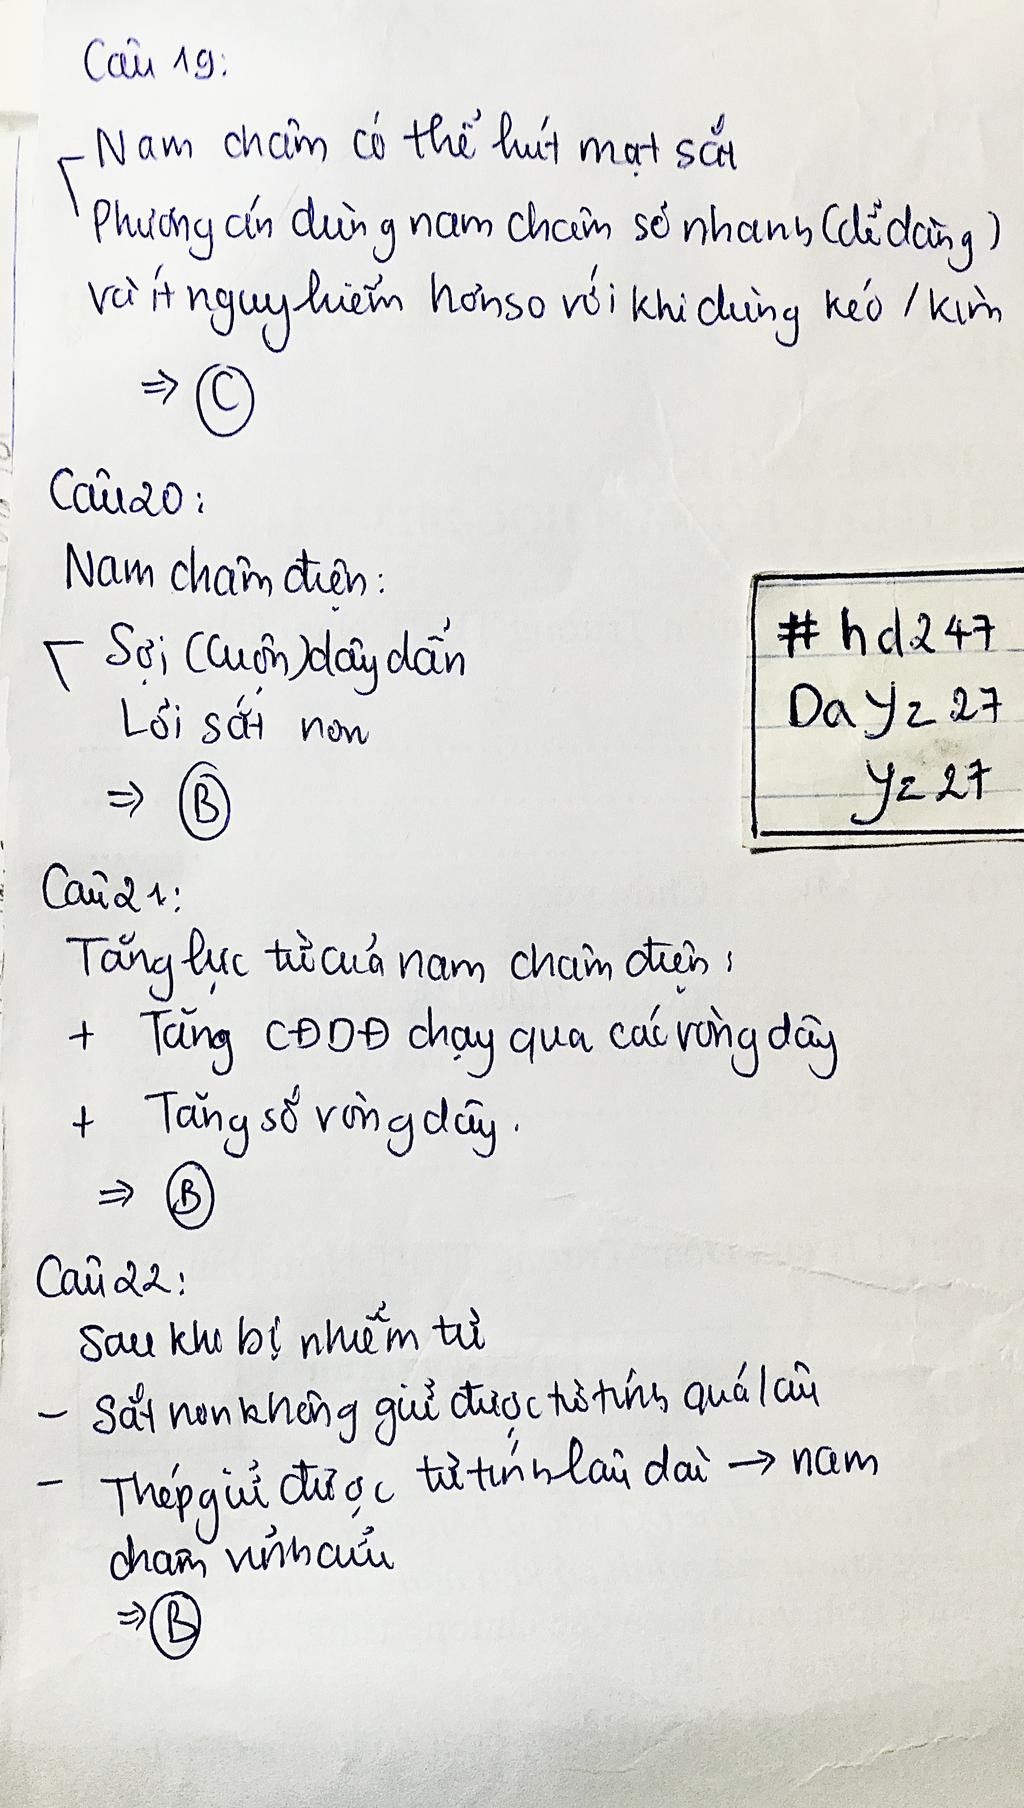 Câu 19:
Nam châm có thể hút mạt sắt
Phương án dùng nam châm sẽ nhanh (dễ dàng)
và ít nguy hiểm hơn so với khi dùng kéo / kim
⇒ C
Câu 20:
Nam châm điện:
Sợi (Cuộn) dây dẫn
Lõi sắt non
⇒ B
#hd247
DaYz27
Yz27
Câu 21:
Tăng lực từ của nam châm điện:
+ Tăng CĐDĐ chạy qua các vòng dây
+ Tăng số vòng dây.
⇒ B
Câu 22:
Sau khi bị nhiễm từ
- Sắt non không giữ được từ tính quá lâu
- Thép giữ được từ tính lâu dài → nam
châm vĩnh cửu
⇒ B